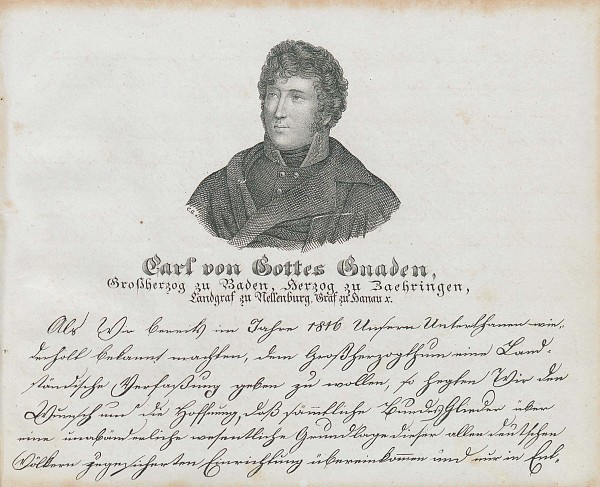 Carl von Gottes Gnaden,
Großherzog zu Baden, Herzog zu Zaehringen,
Landgraf zu Nellenburg, Graf zu Hanau ꝛc.
Als Wir bereits im Jahre 1816 Unsern Unterthanen wie-
derholt bekannt machten, dem Großherzogthum eine Land-
ständische Verfaßung geben zu wollen, so hegten Wir den
Wunsch und die Hoffnung, daß sämmtliche Bundesglieder über
eine unabänderliche wesentliche Grundlage dieser allen deutschen
Völkern zugesicherten Einrichtung übereinkommen und nur in Ent-